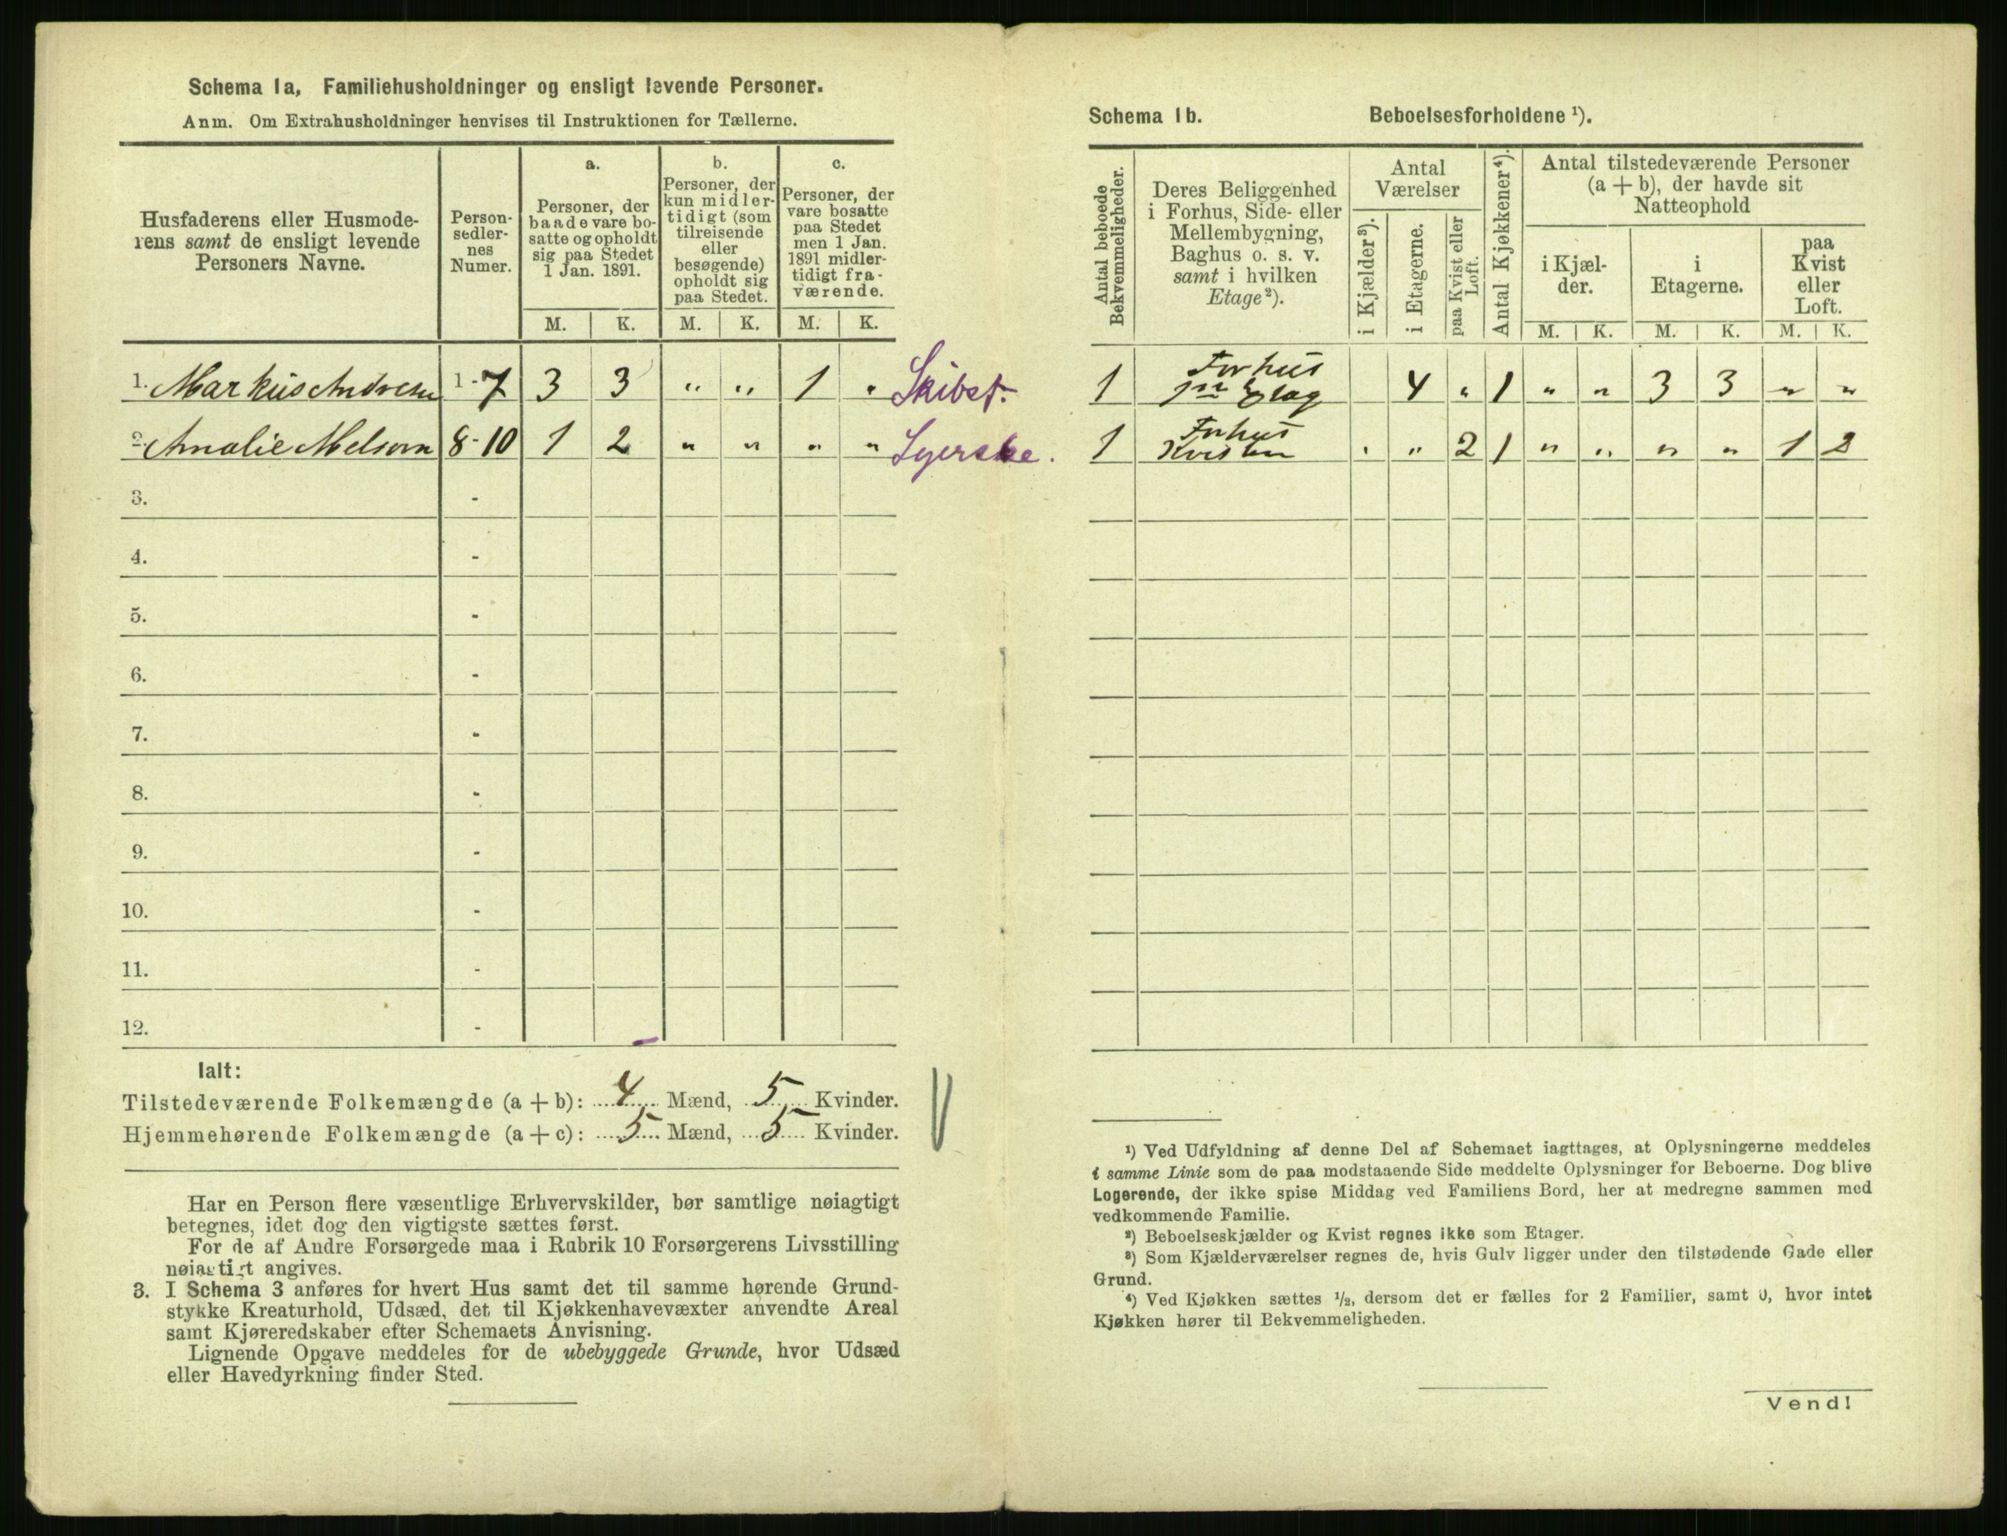 Schema 1a, Familiehusholdninger og ensligt levende Personer.
Anm. Om Extrahusholdninger henvises til Instruktionen for Tællerne.
Husfaderens eller Husmode-
rens samt de ensligt levende
Personers Navne.
Person-
sedler-
nes
Numer.
a.
Personer, der
baade vare bo-
satte og opholdt
sig paa Stedet
1 Jan. 1891.
b.
Personer, der
kun midler-
tidigt (som
tilreisende
eller
besøgende)
opholdt sig
paa Stedet.
c.
Personer, der
vare bosatte
paa Stedet
men 1 Jan.
1891 midler-
tidigt fra-
værende.
M. K. M. K. M. K.
1. Markus Andresen 1-7 3 3 " " 1 " Skibst.
2. Amalie Melsom 8-10 1 2 " " " " Syerske.
3. -
4. -
5. -
6. -
7. -
8. -
9. -
10. -
11. -
12. -
Ialt:
Tilstedeværende Folkemængde (a + b): 4 Mænd, 5 Kvinder.
Hjemmehørende Folkemængde (a + c): 5 Mænd, 5 Kvinder.
Har en Person flere væsentlige Erhvervskilder, bør samtlige nøiagtigt
betegnes, idet dog den vigtigste sættes først.
For de af Andre Forsørgede maa i Rubrik 10 Forsørgerens Livsstilling
nøiagtigt angives.
3. I Schema 3 anføres for hvert Hus samt det til samme hørende Grund-
stykke Kreaturhold, Udsæd, det til Kjøkkenhavevæxter anvendte Areal
samt Kjøreredskaber efter Schemaets Anvisning.
Lignende Opgave meddeles for de ubebyggede Grunde, hvor Udsæd
eller Havedyrkning finder Sted.
Schema 1b. Beboelsesforholdene ¹).
Antal beboede
Bekvemmeligheder.
Deres Beliggenhed
i Forhus, Side- eller
Mellembygning,
Baghus o. s. v.
samt i hvilken
Etage ²).
Antal
Værelser
i Kjælder ³).
i Etagerne.
paa Kvist eller
Loft.
Antal Kjøkkener ⁴).
Antal tilstedeværende Personer
(a + b), der havde sit
Natteophold
i Kjæl-
der.
i
Etagerne.
paa
Kvist
eller
Loft.
M. K. M. K. M. K.
Forhus
1 1ste Etag 4 " 1 " " 3 3 " "
Forhus
1 Kvisten " " 2 1 " " " " 1 2
¹) Ved Udfyldning af denne Del af Schemaet iagttages, at Oplysningerne meddeles
i samme Linie som de paa modstaaende Side meddelte Oplysninger for Beboerne. Dog blive
Logerende, der ikke spise Middag ved Familiens Bord, her at medregne sammen med
vedkommende Familie.
²) Beboelseskjælder og Kvist regnes ikke som Etager.
³) Som Kjælderværelser regnes de, hvis Gulv ligger under den tilstødende Gade eller
Grund.
⁴) Ved Kjøkken sættes ¹/₂, dersom det er fælles for 2 Familier, samt 0, hvor intet
Kjøkken hører til Bekvemmeligheden.
Vend!